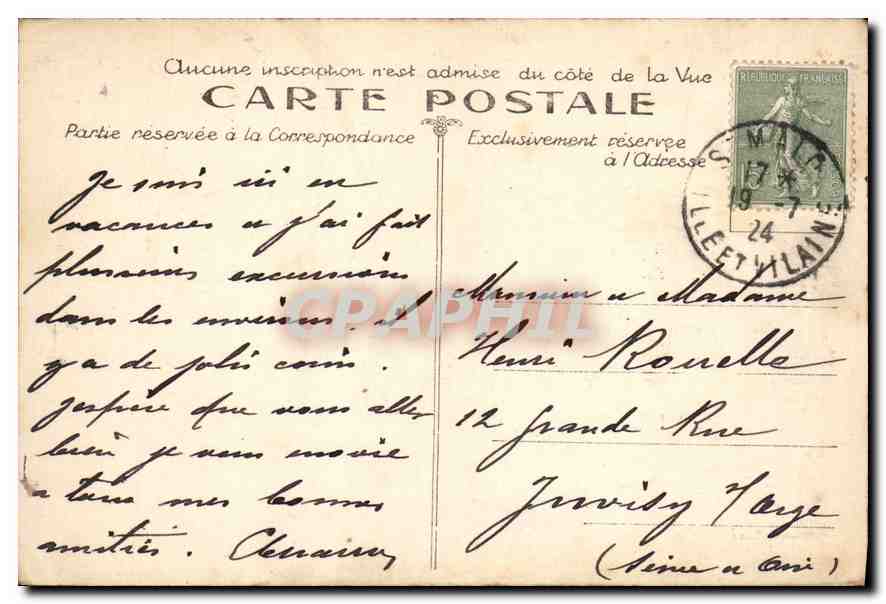 Aucune inscription n'est admise du côté de la Vue
CARTE POSTALE
Partie réservée à la Correspondance
Exclusivement réservée
à l'Adresse
RÉPUBLIQUE FRANÇAISE
ST MALO
17 *
19 -7
24
ILLE ET VILAINE
Je suis ici en
vacances et j'ai fait
plusieurs excursions
dans les environs. il
y a de jolis coins.
J'espère que vous allez
bien je vous envoie
a tous mes bonnes
amitiés.
Monsieur et Madame
Henri Rouelle
12 Grande Rue
Juvisy s/ Orge
(Seine et Oise)
CPAPHIL